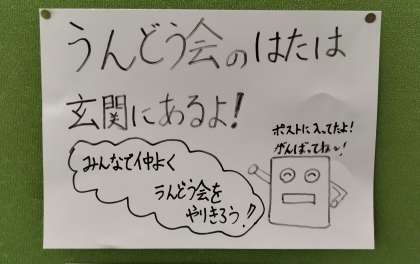 うんどう会のはたは
玄関にあるよ!
ポストに入ってたよ!
げんばってねー!
みんなで仲よく
うんどう会を
やりきろう!!